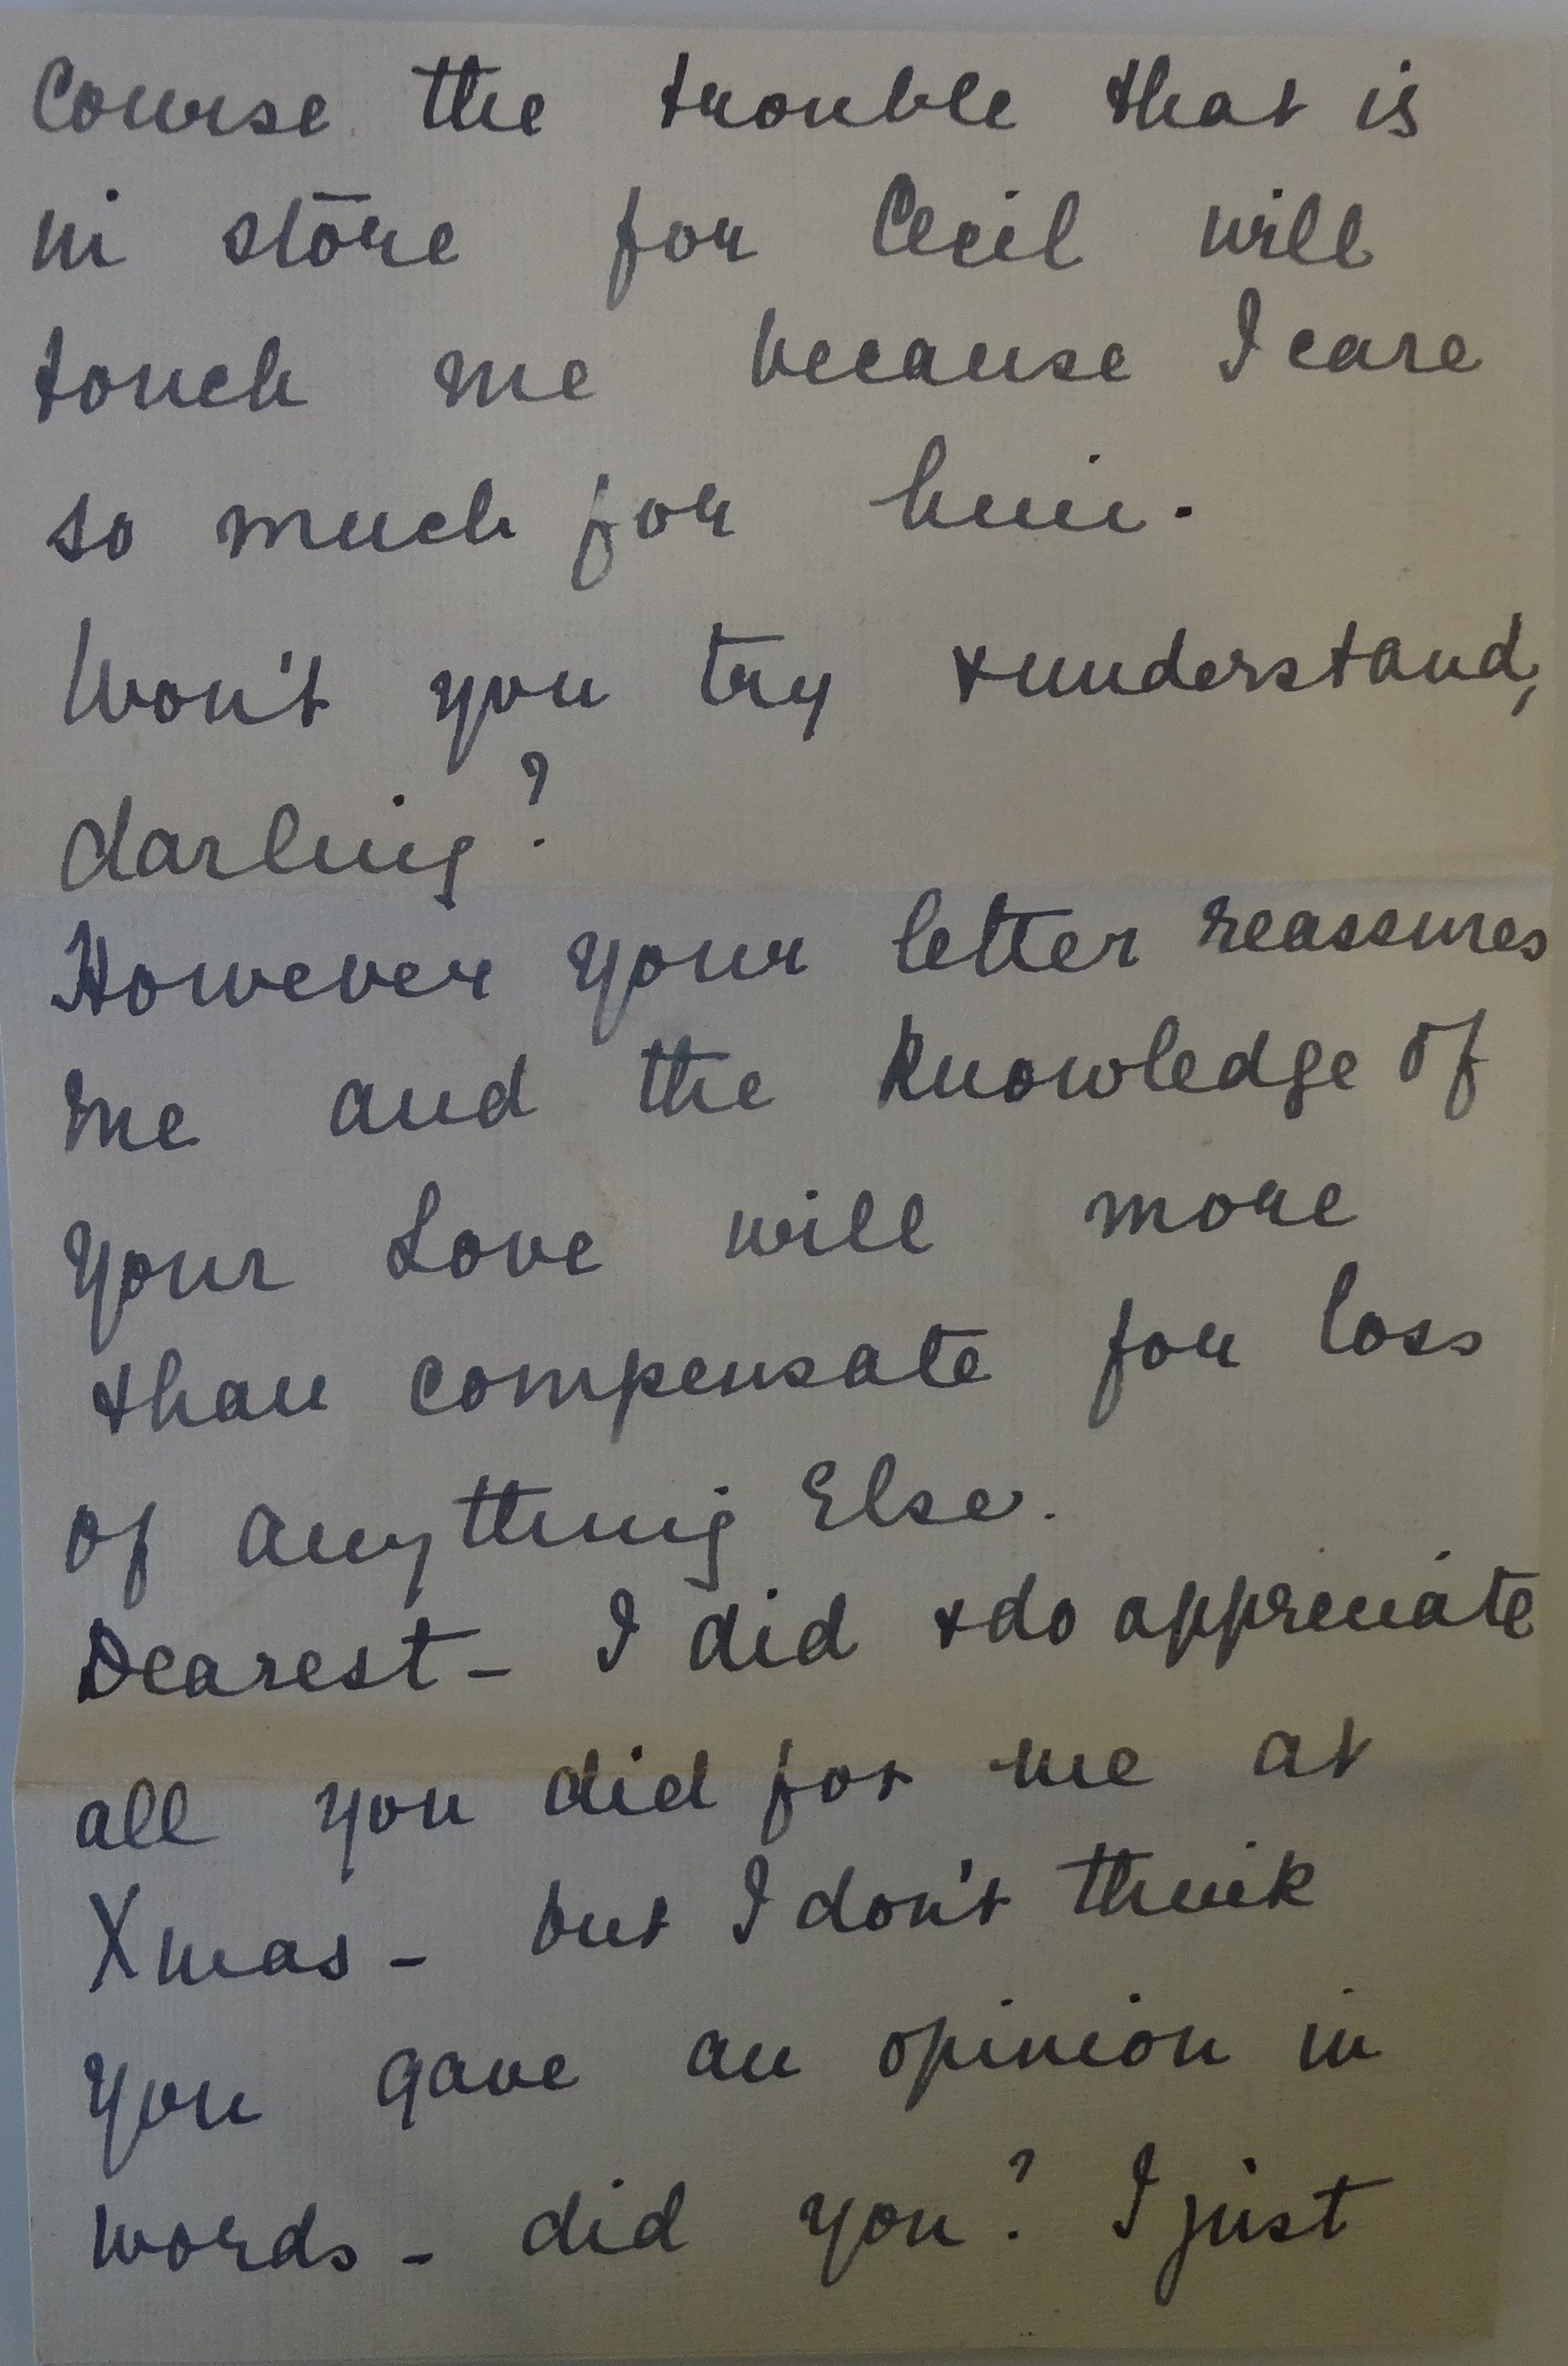 Course the trouble that is
in store for Cecil will
touch me because I care
so much for him.
Won't you try & understand,
darling?
However your letter reassures
me and the knowledge of
your Love will more
than compensate for loss
of anything Else.
Dearest - I did & do appreciate
all you did for me at
Xmas - but I don't think
you gave an opinion in
words - did you? I just